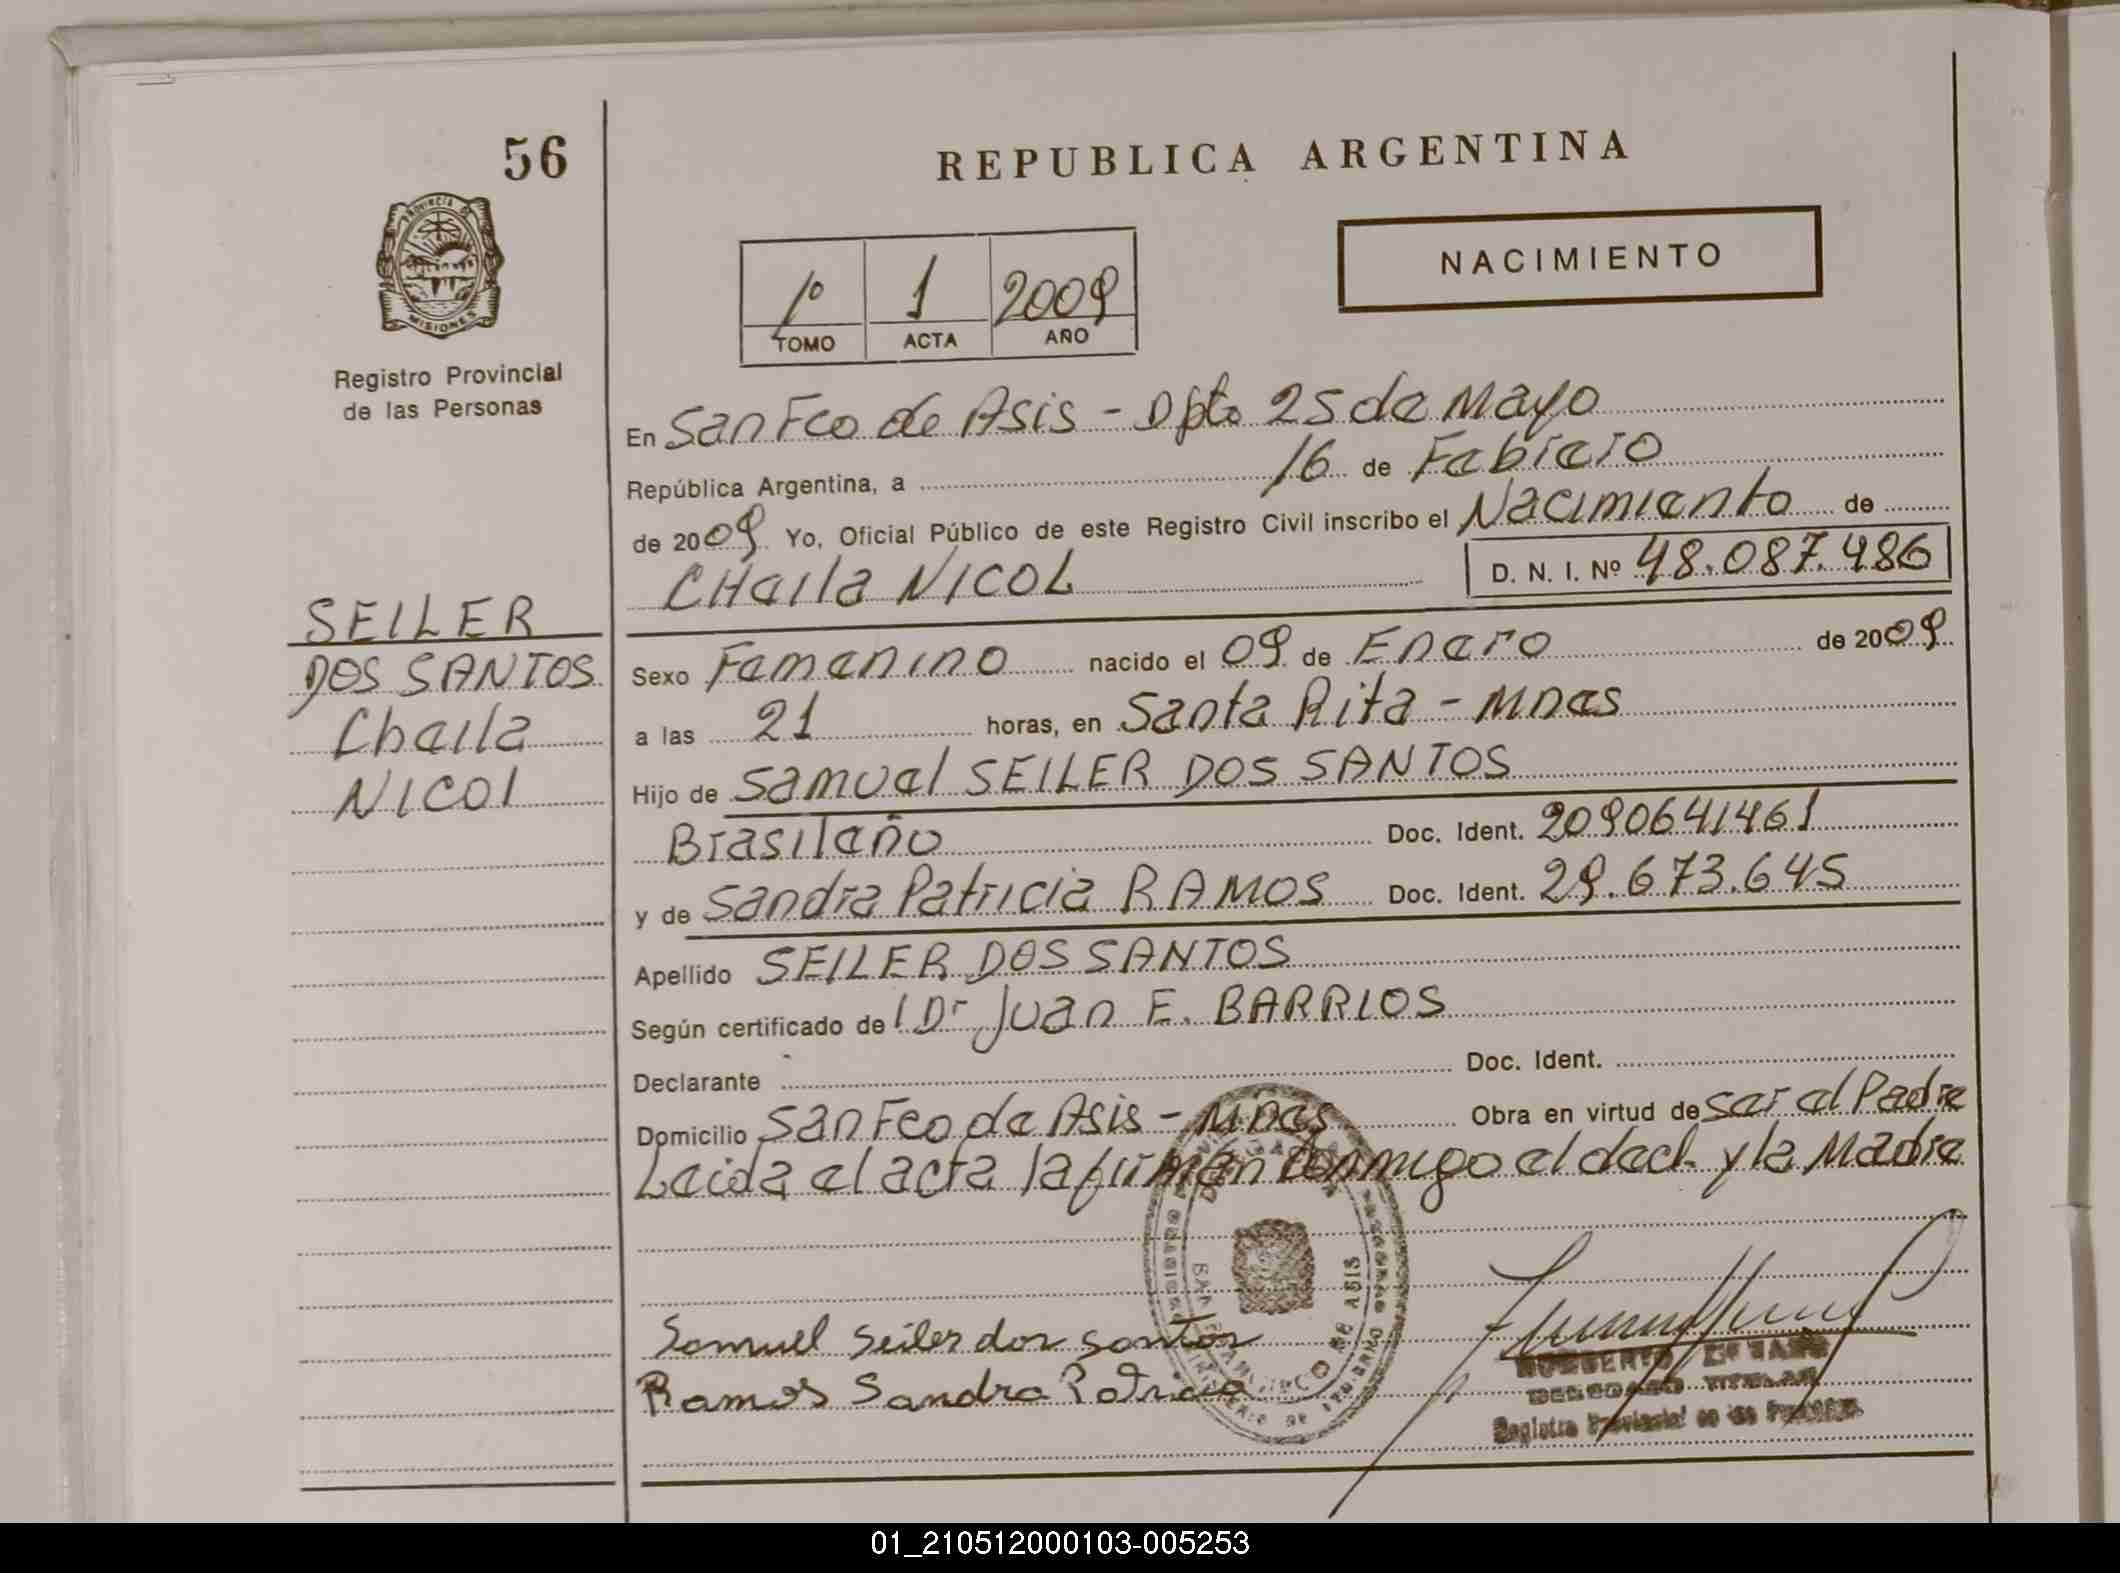 56
REPUBLICA ARGENTINA
PROVINCIA DE
MISIONES
Registro Provincial
de las Personas
NACIMIENTO
1º 1 2009
TOMO ACTA AÑO
En San Fco de Asis - Dpto 25 de Mayo
República Argentina, a 16 de Febrero
de 2009 Yo, Oficial Público de este Registro Civil inscribo el Nacimiento de
CHeila NICOL D. N. I. Nº 48.087.486
SEILER
DOS SANTOS
Cheila
NICOl
Sexo Femenino nacido el 09 de Enero de 2009
a las 21 horas, en Santa Rita - Mnes
Hijo de Samuel SEILER DOS SANTOS
Brasileño Doc. Ident. 2090641461
y de Sandra Patricia RAMOS Doc. Ident. 29.673.645
Apellido SEILER DOS SANTOS
Según certificado del Dr Juan E. BARRIOS
Declarante Doc. Ident.
Domicilio San Fco de Asis - Mnes Obra en virtud de ser el Padre
Leida el acta la firman conmigo el decl. y la Madre
Samuel Seiler dos santos
Ramos Sandra Patricia
DELEGADO TITULAR
Registro Provincial de las Personas
01_210512000103-005253